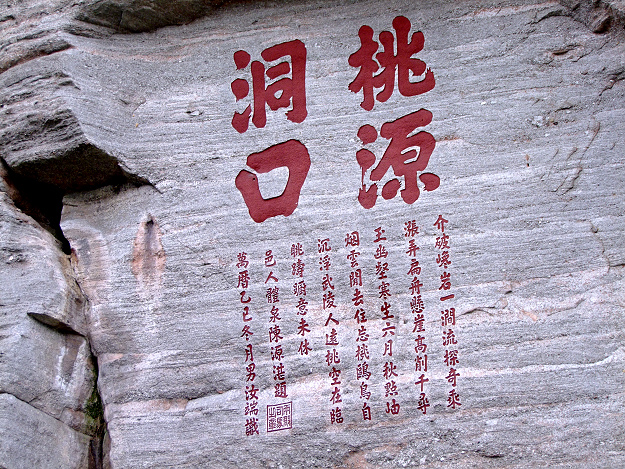 桃源
洞口
介破嶢岩一澗流探奇乘
漲弄扁舟懸崖高削千尋
玉幽壑寒生六月秋點油
烟雲閒去住忘機鷗鳥自
沉浮武陵人遠桃空在臨
眺躊躕意未休
邑人體泉陳源湛題
萬曆乙巳冬月男汝端識